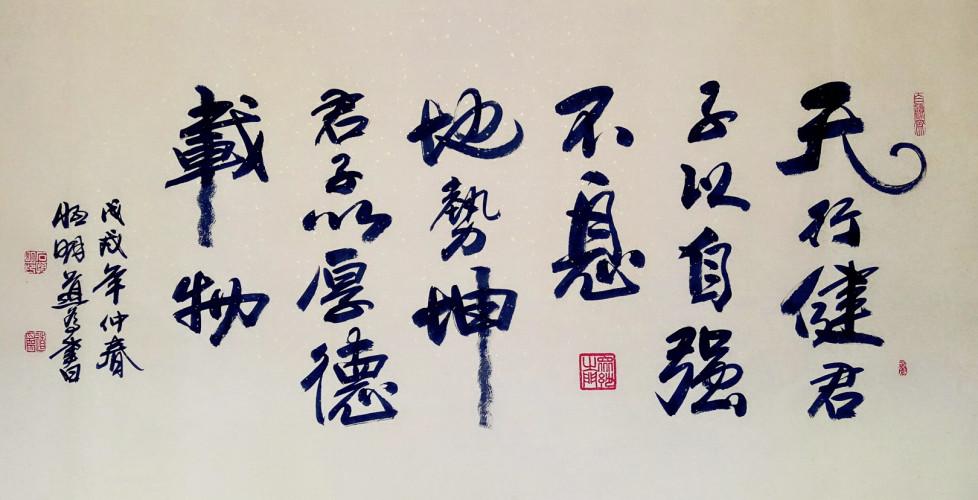 天行健君
子以自强
不息
地勢坤
君子以厚德
載物
戊戌年仲春
明道為書